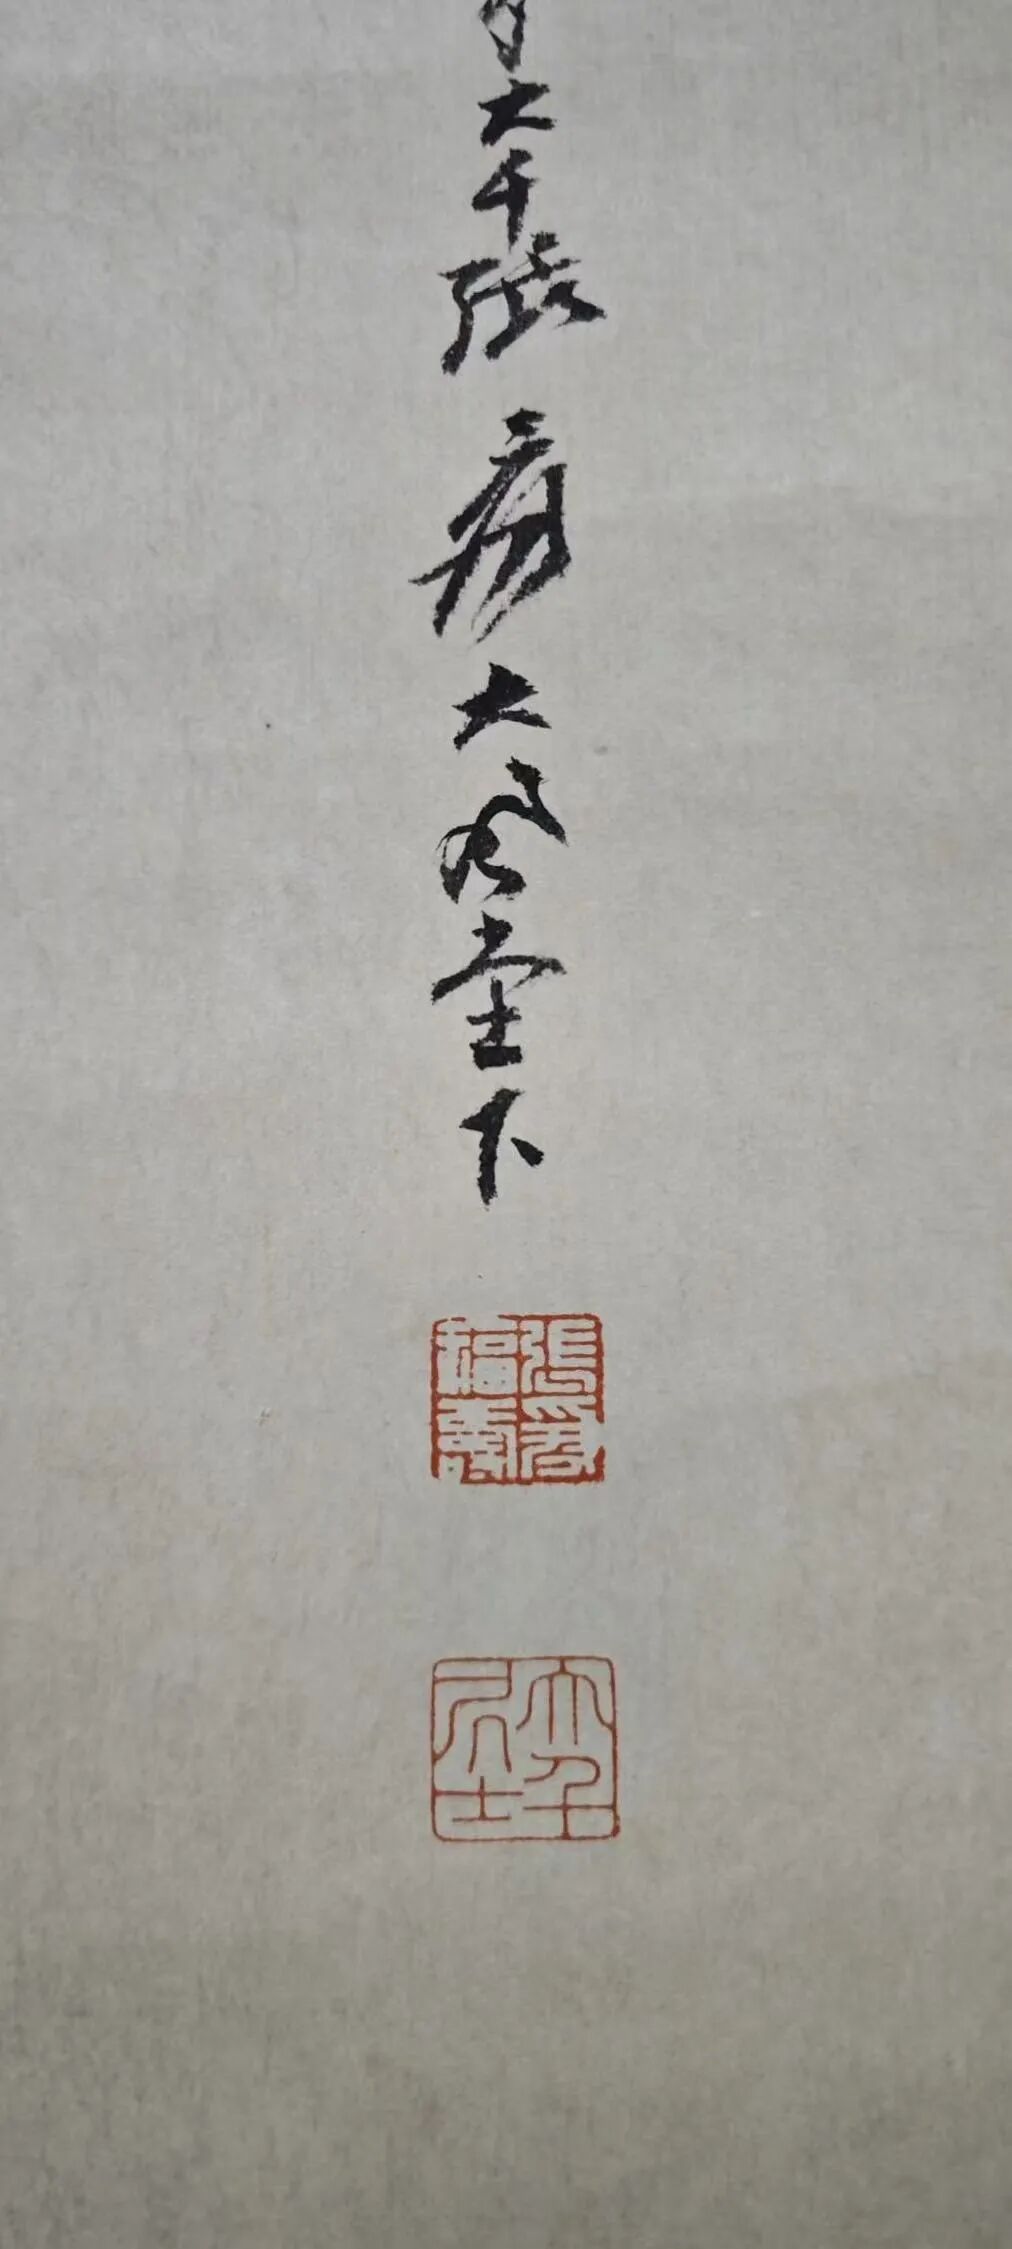 大千張爰大風堂下
張爰福壽
大千居士